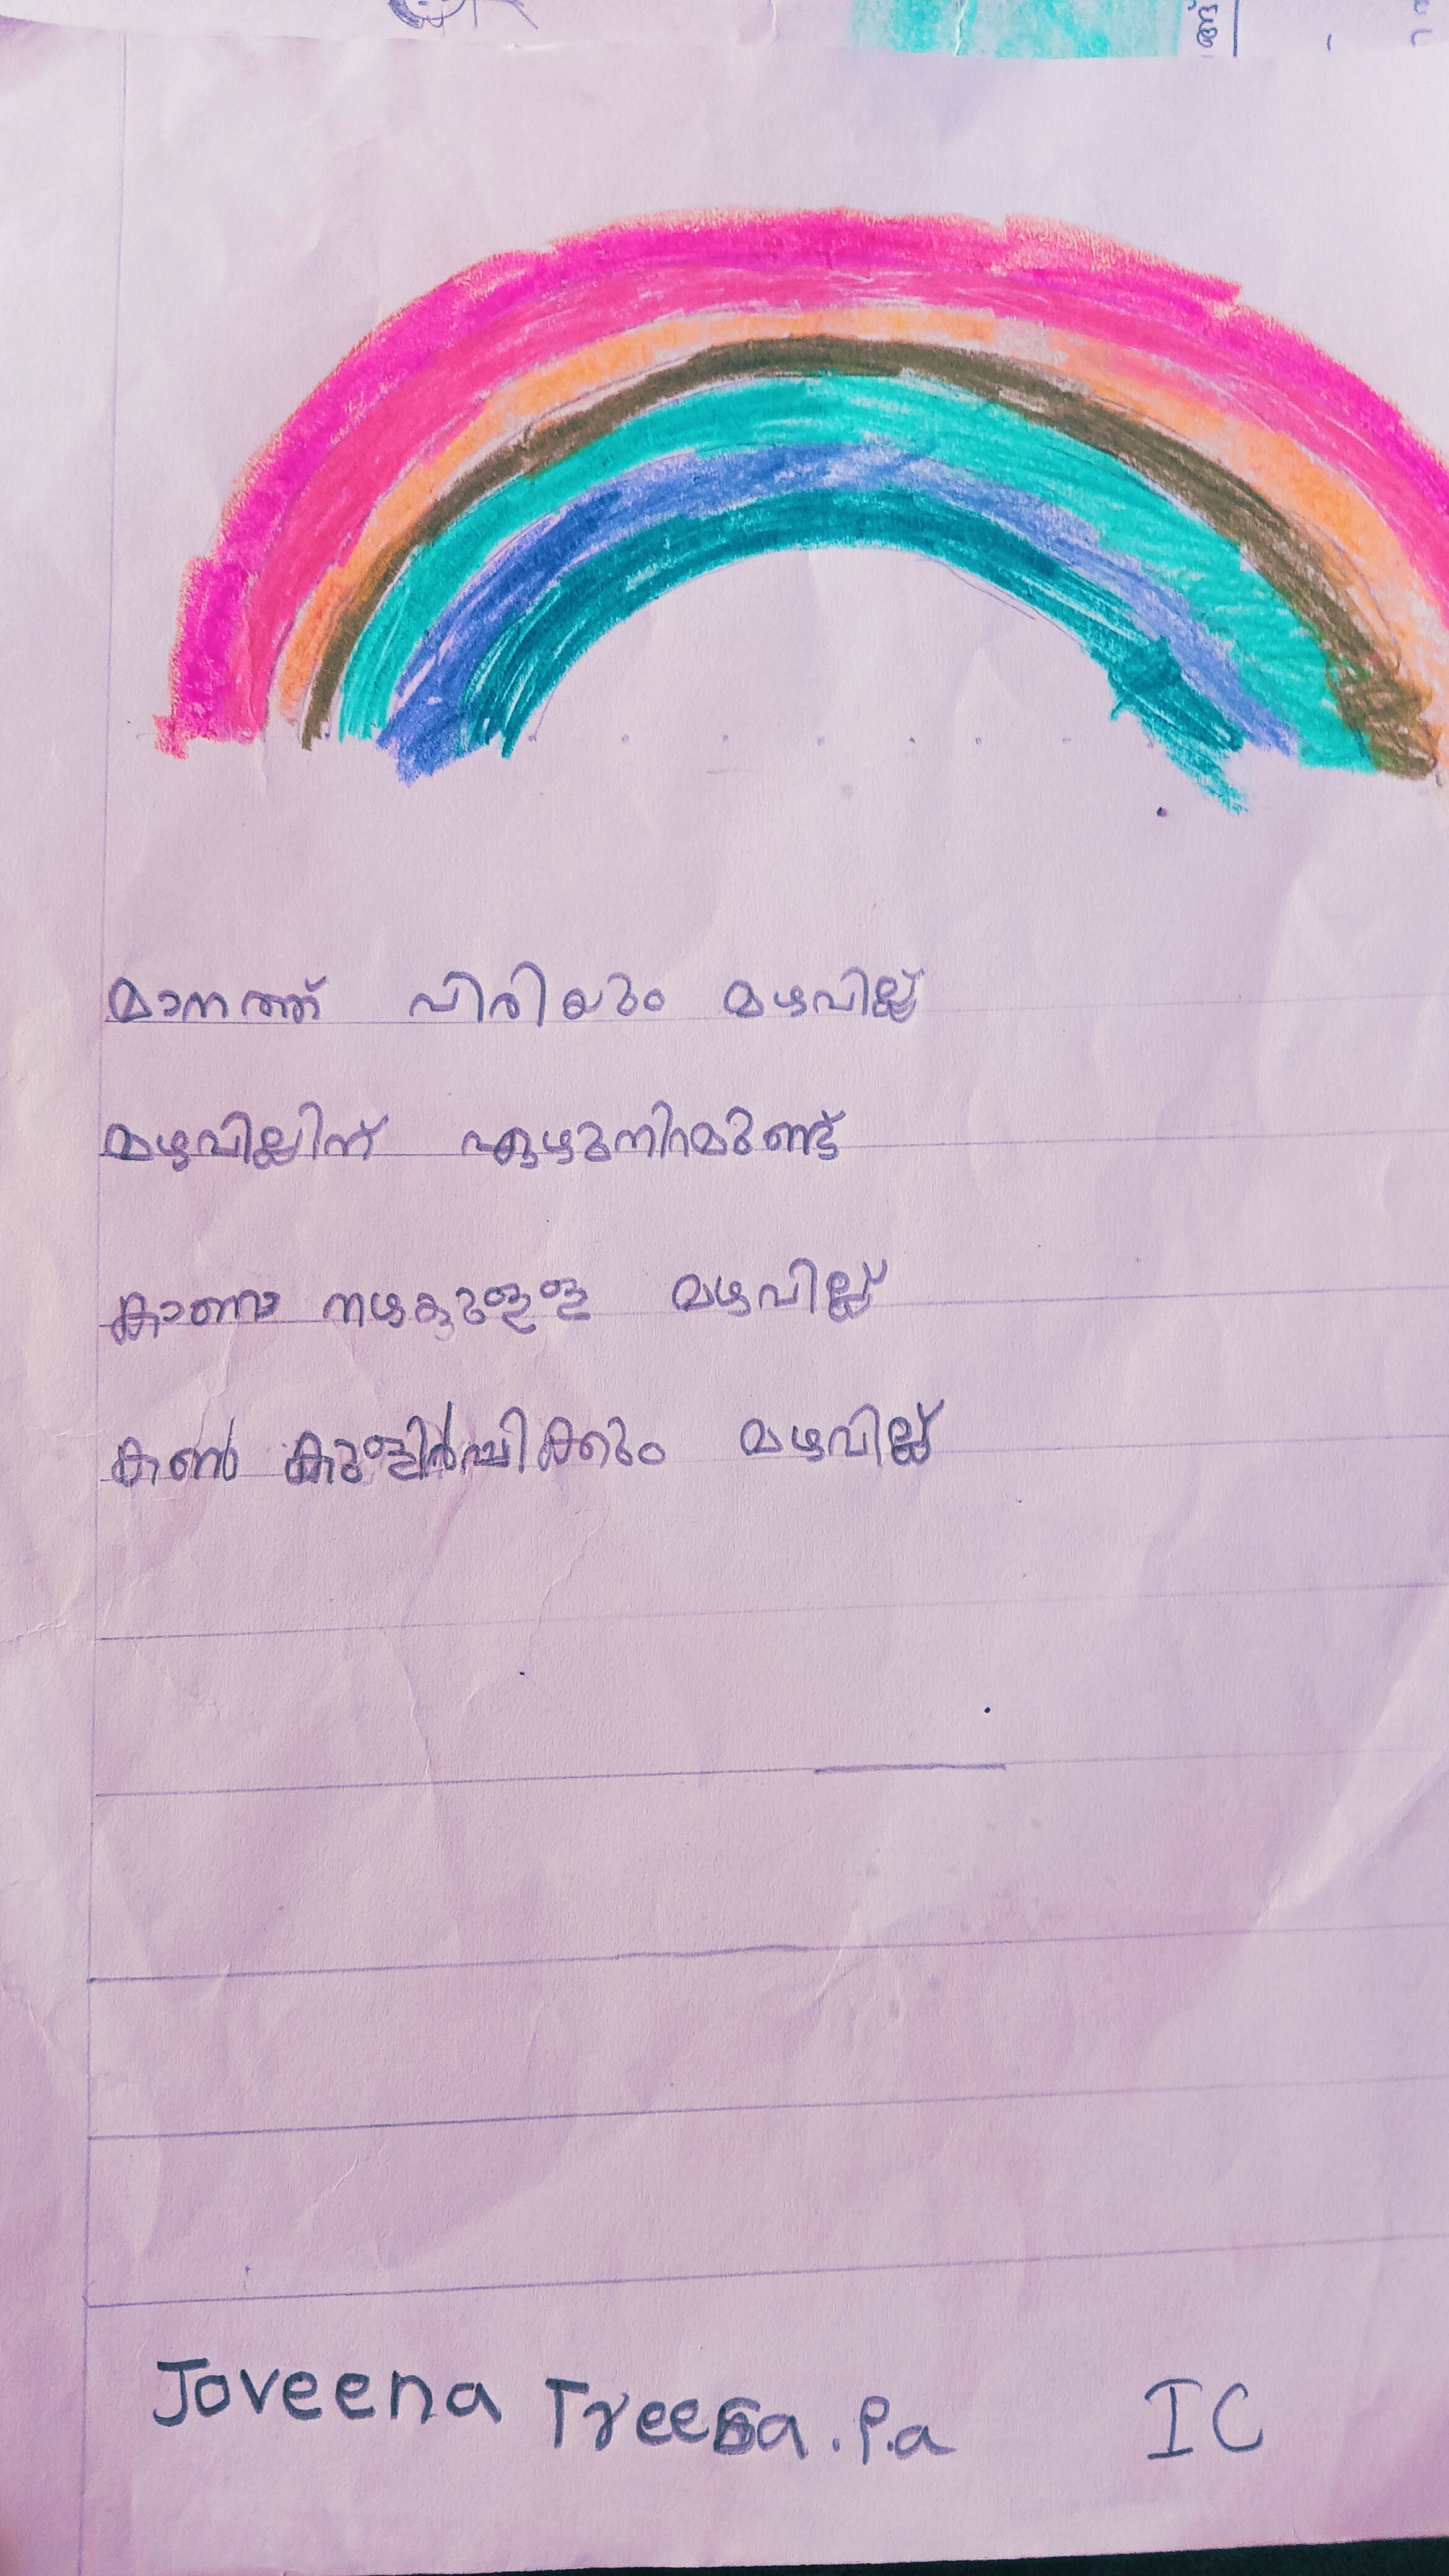 മാനത്ത് വിരിയും മഴവില്ല്
മഴവില്ലിന് ഏഴുനിറമുണ്ട്
കാണാ നഴകുള്ള മഴവില്ല്
കൺ കുളിർപ്പിക്കും മഴവില്ല്
Joveena Treesa . P.a I C